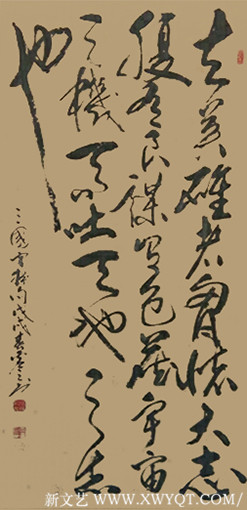 夫英雄者胸懷大志
腹有良謀有包藏宇宙
之機吞吐天地之志
也
三國 戊戌春
新文艺/WWW.XWYQT.COM/